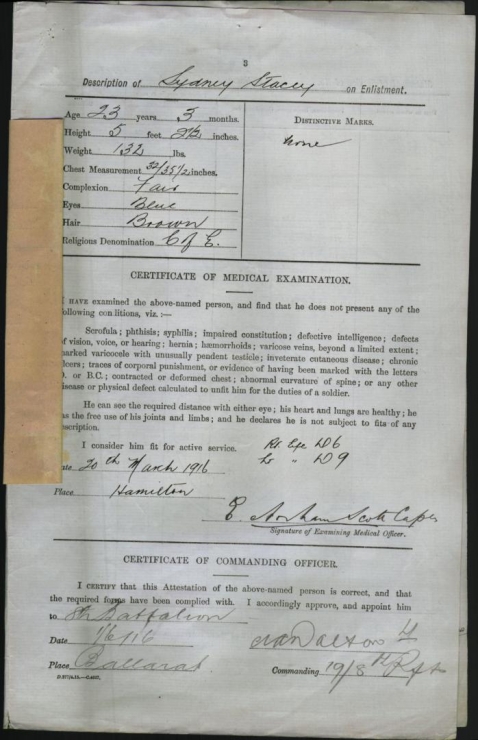 3
Description of Sydney Stacey on Enlistment.
Age 23 years 3 months.
Height 5 feet inches.
Weight 132 lbs.
Chest Measurement 32/35 1/2 inches.
Complexion Fair
Eyes Blue
Hair Brown
Religious Denomination C of E.
DISTINCTIVE MARKS.
None
CERTIFICATE OF MEDICAL EXAMINATION.
I HAVE examined the above-named person, and find that he does not present any of the
following conditions, viz. :—
Scrofula; phthisis; syphilis; impaired constitution; defective intelligence; defects
of vision, voice, or hearing; hernia; hæmorrhoids; varicose veins, beyond a limited extent;
marked varicocele with unusually pendent testicle; inveterate cutaneous disease; chronic
ulcers; traces of corporal punishment, or evidence of having been marked with the letters
D. or B.C.; contracted or deformed chest; abnormal curvature of spine; or any other
disease or physical defect calculated to unfit him for the duties of a soldier.
He can see the required distance with either eye; his heart and lungs are healthy; he
has the free use of his joints and limbs; and he declares he is not subject to fits of any
description.
I consider him fit for active service. Rt Eye D6
Date 20th March 1916 Lt " D9
Place Hamilton
Scott Capt
Signature of Examining Medical Officer.
CERTIFICATE OF COMMANDING OFFICER.
I CERTIFY that this Attestation of the above-named person is correct, and that
the required forms have been complied with. I accordingly approve, and appoint him
to 8th Battalion
Date 1/6/16
Place Ballarat
Commanding 19/8th Rfts